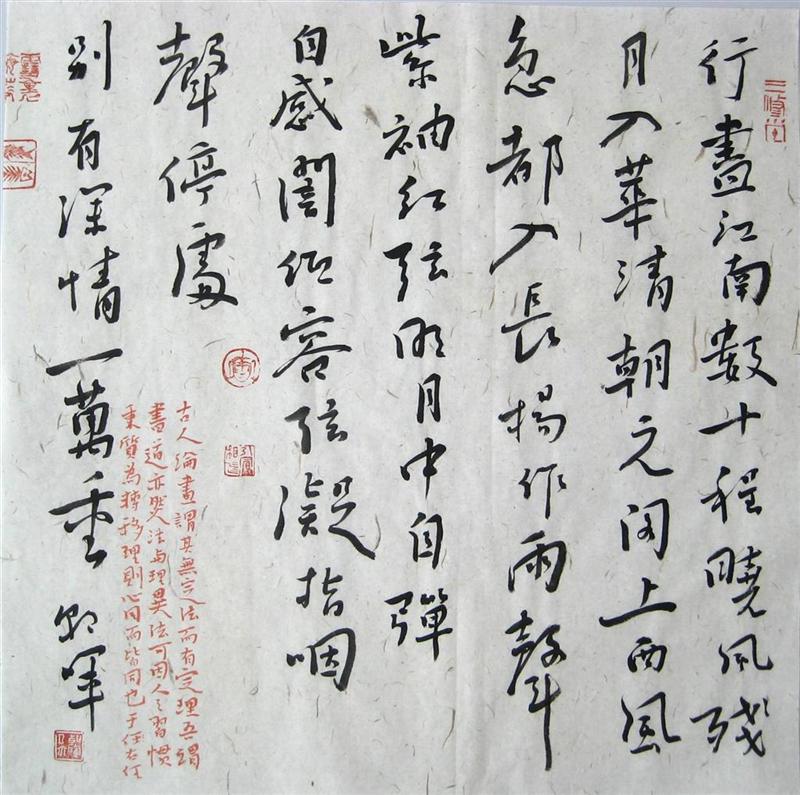 行盡江南數十程曉風殘
月入華清朝元閣上西風
急都入長楊作雨聲
紫袖紅弦明月中自彈
自感闇低容弦凝指咽
聲停處
別有深情一萬重
古人論畫謂其無定法而有定理吾謂
書道亦然人法與理異法可因人之習慣
秉質為轉移理則心同而皆同也于任右任
三修堂